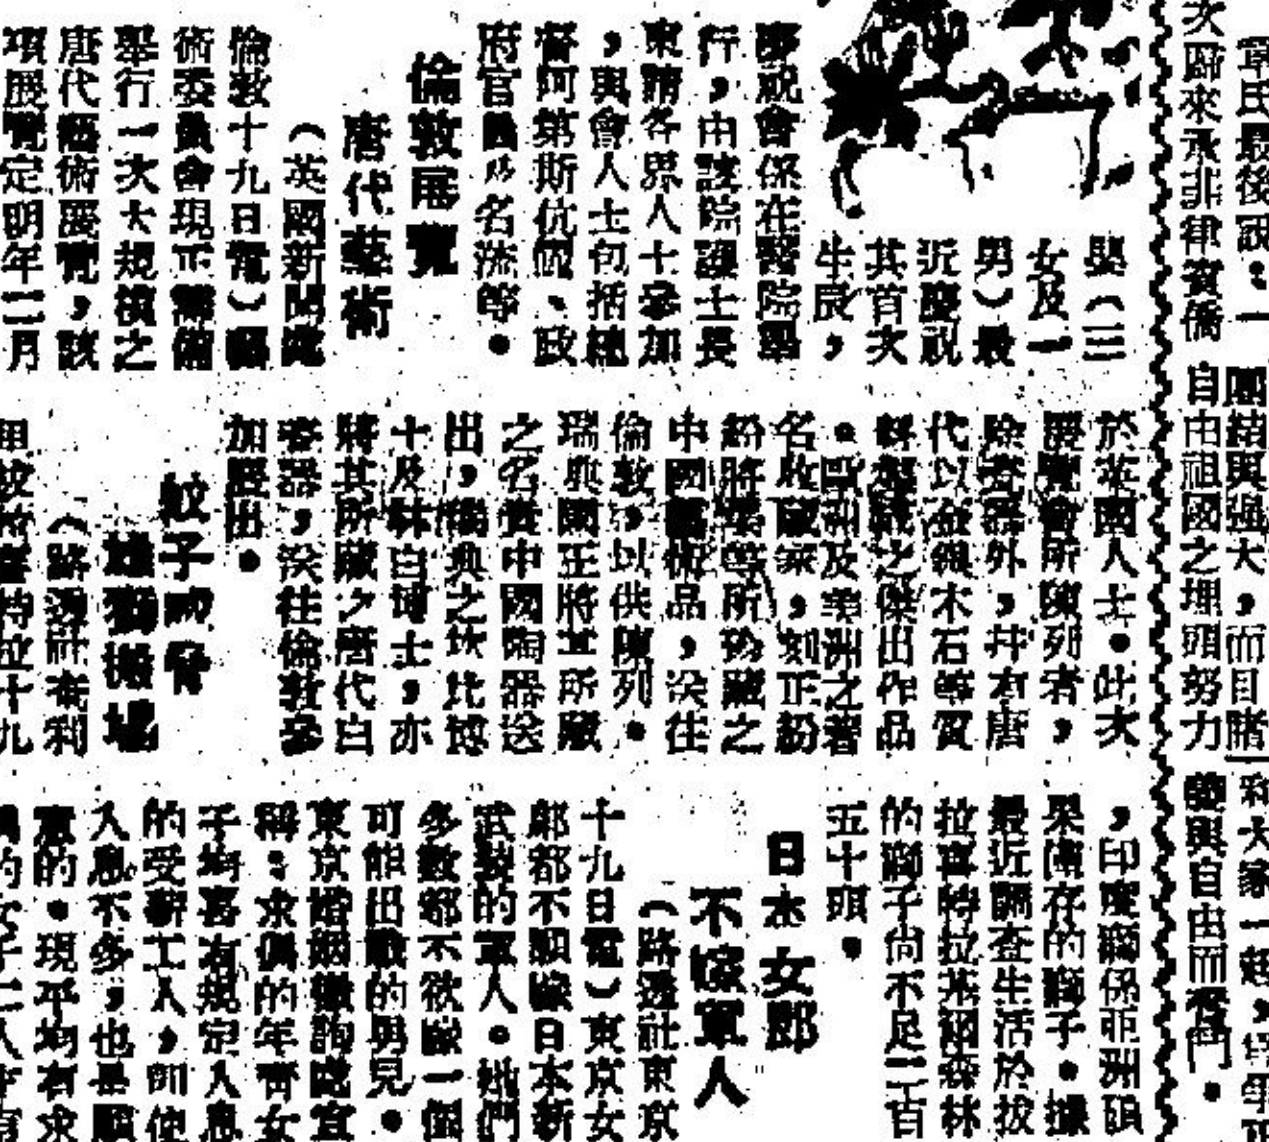 章氏最後說：一
次歸來承菲律賓僑
團結與強大，而目睹
自由祖國之埋頭努力
和大家一起，
與自由而奮鬥。
嬰（三
女及一
男）最
近慶祝
其首次
生辰，
慶祝會係在醫院舉
行，由該院護士長
柬請各界人士參加
，與會人士包括總
督阿第斯伉儷、政
府官員及名流等。
倫敦展覽
唐代藝術
（英國新聞處
倫敦十九日電）藝
術委員會現正籌備
舉行一次大規模之
唐代藝術展覽，該
項展覽定明年二月
於英國人士。此次
展覽會所陳列者，
除瓷器外，并有唐
代以金銀木石等質
料製成之傑出作品
。歐洲及美洲之著
名收藏家，刻正紛
紛將彼等所珍藏之
中國藝術品，送往
倫敦，以供陳列。
瑞典國王將其所藏
之名貴中國陶器送
出，瑞典之坎比博
士及林白博士，亦
將其所藏之唐代白
瓷器，送往倫敦參
加展出。
蚊子成脅
雄獅搬場
（路透社喬利
特拉十九
，印度獅係亞洲碩
果僅存的獅子。據
最近調查生活於拔
拉寫特拉茶爾森林
的獅子尚不足二百
五十頭。
日本女郎
不嫁軍人
（路透社東京
十九日電）東京女
郎都不願嫁日本新
武裝的軍人。她們
多數都不欲嫁一個
可能出戰的男兒。
東京婚姻諮詢處宣
稱：求偶的年青女
子均喜有規定入息
的受薪工人，即使
入息不多，也是願
意的。現平均有求
偶的女子二人才有